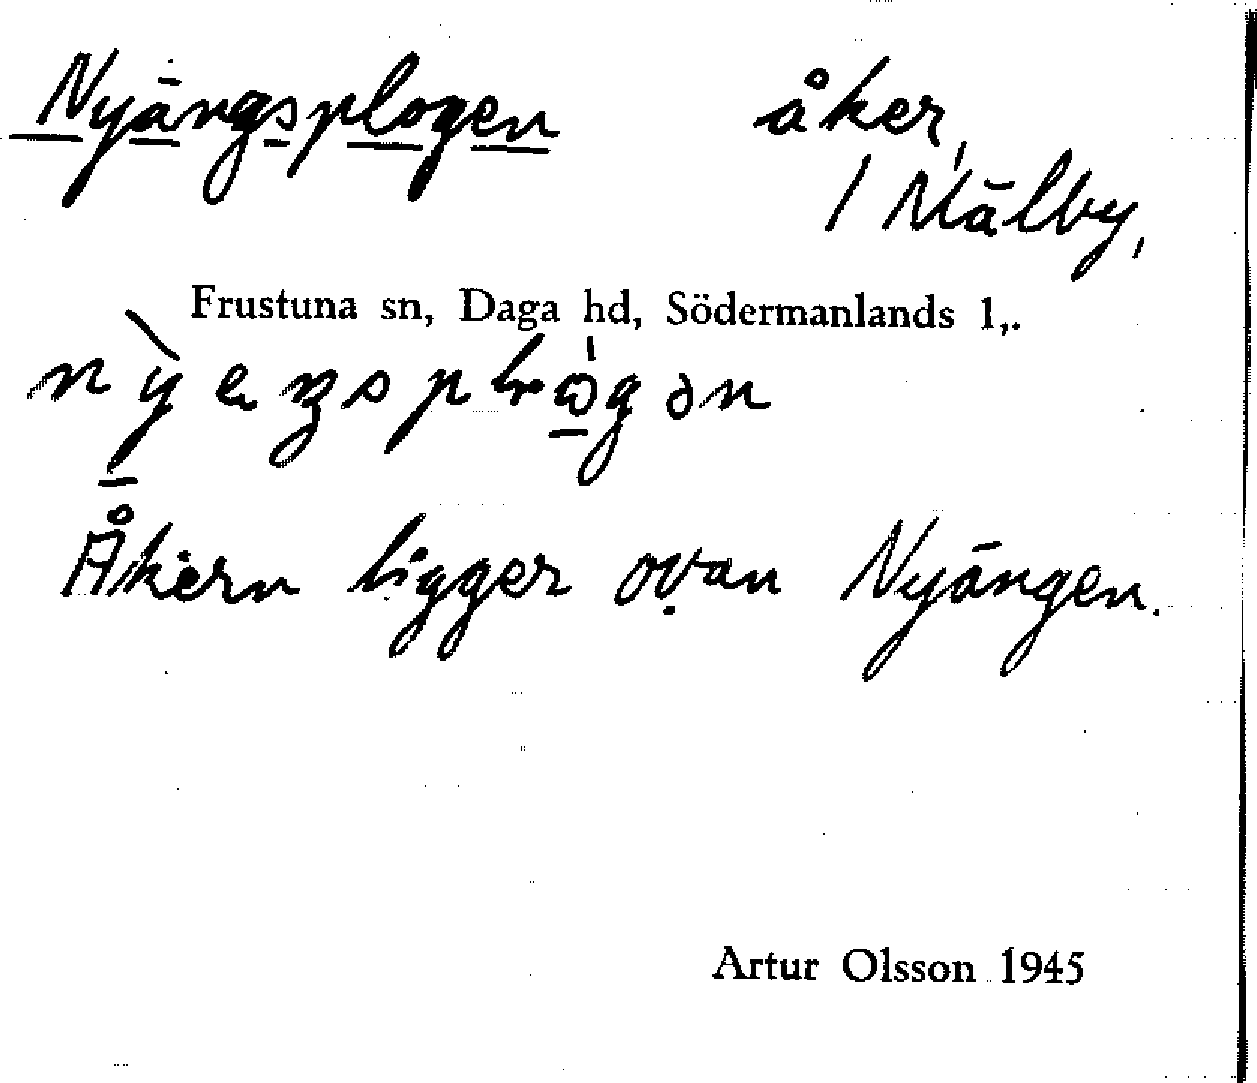 Nyängsplogen åker,
1 Mälby,
Frustuna sn, Daga hd, Södermanlands l,.
Åkern ligger ovan Nyängen.
Artur Olsson 1945